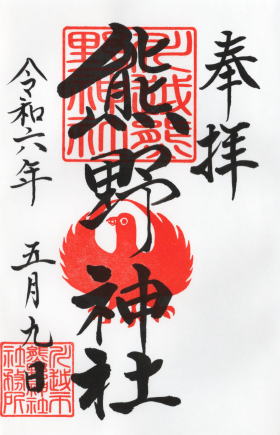 奉拝
川越熊
野神社
熊野神社
令和六年 五月九日
川越市
熊野神社
社務所